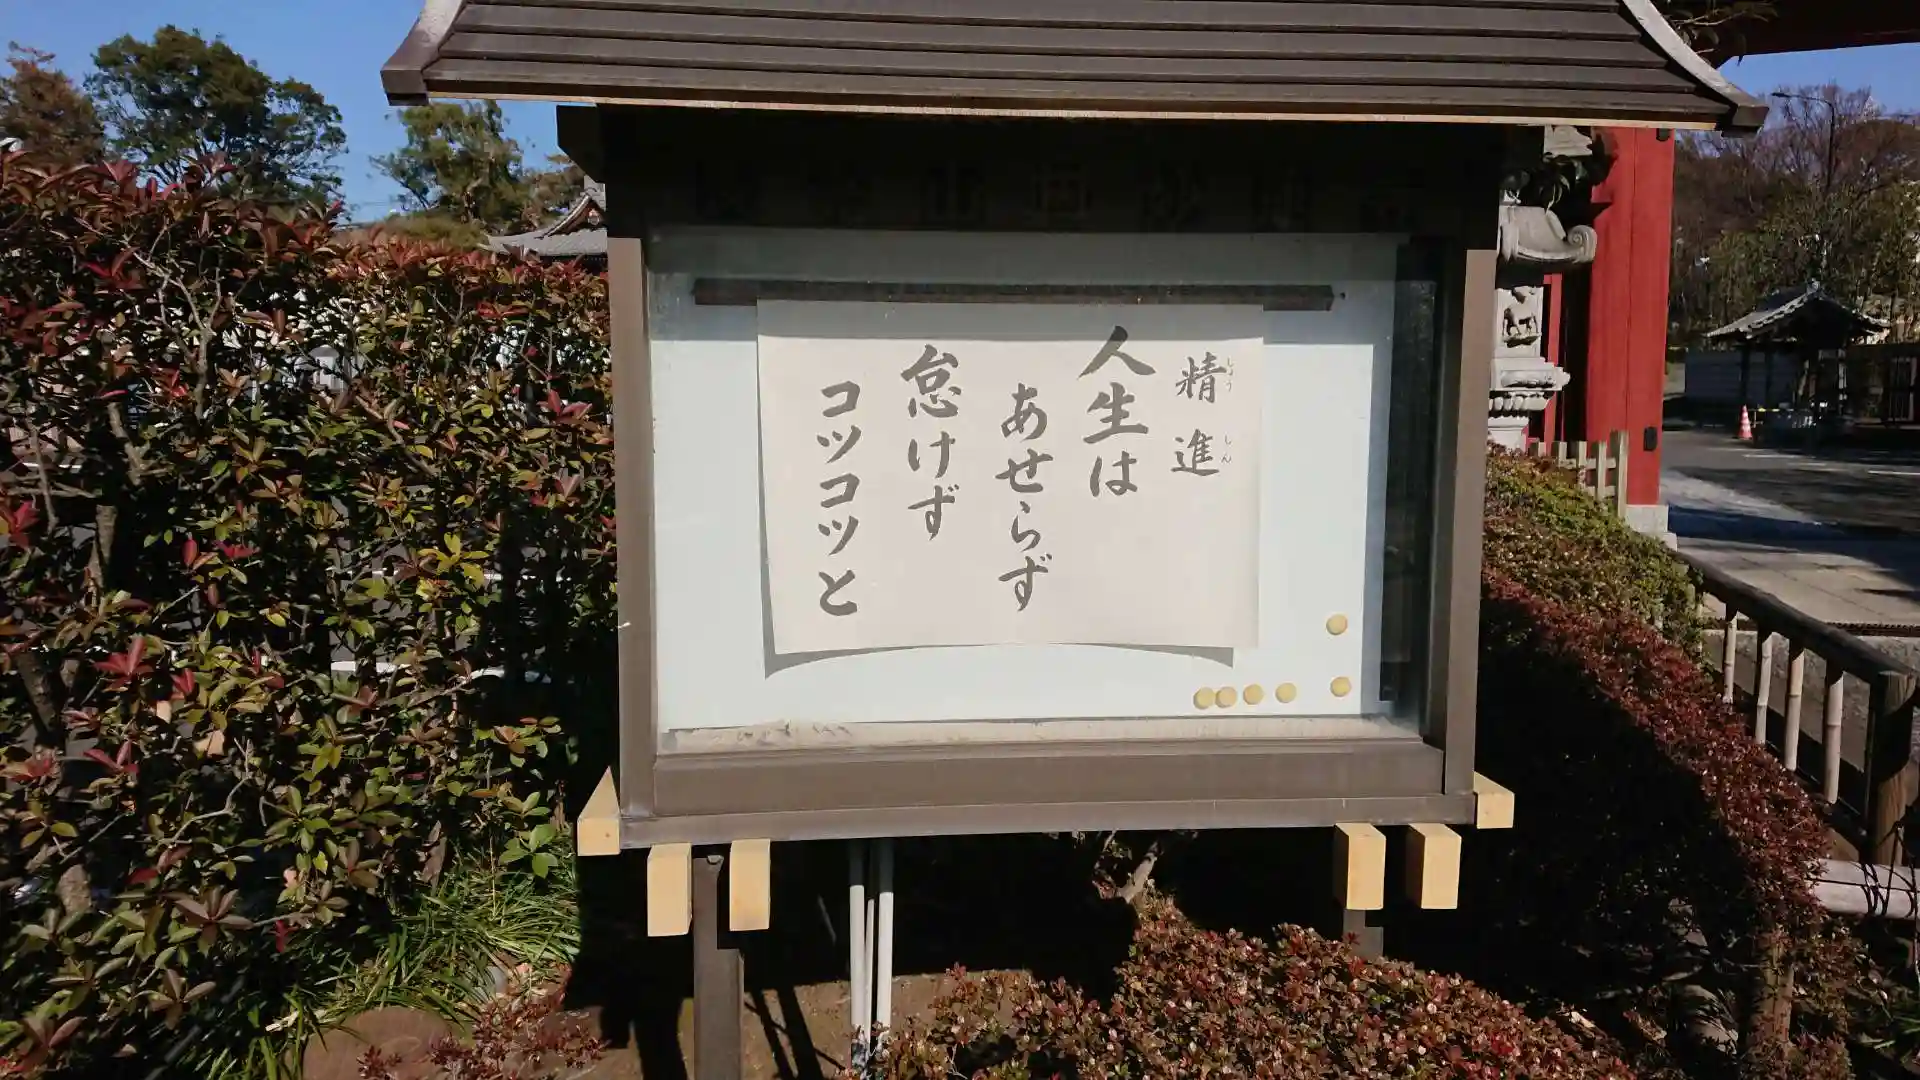 精進
しょうしん
人生は
あせらず
怠けず
コツコツと